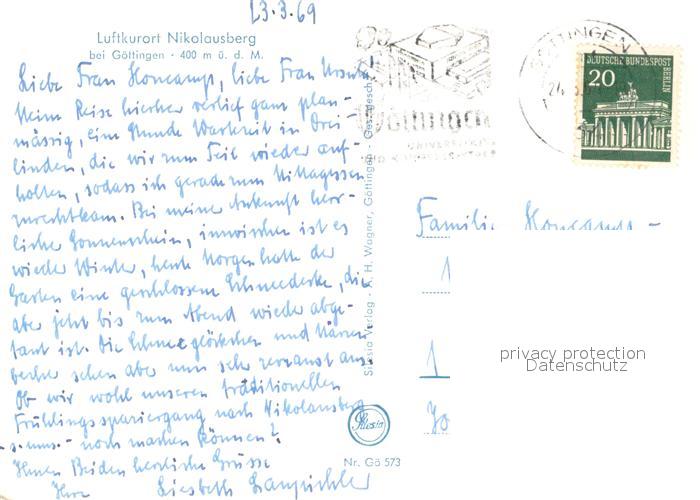 23.3.69
Luftkurort Nikolausberg
bei Göttingen · 400 m ü. d. M.
Liebe Frau Honcamp, liebe Frau Ursula
Meine Reise hierher verlief ganz plan-
mässig, eine Stunde Wartezeit in Drei-
linden, die wir zum Teil wieder auf-
holten, sodass ich gerade zum Mittagessen
zurechtkam. Bei meiner Ankunft herr-
licher Sonnenschein, inzwischen ist es
wieder Winter, heute Morgen hatte der
Garten eine geschlossene Schneedecke, die
aber jetzt bis zum Abend wieder abge-
taut ist. Die Schneeglöckchen und Märzen-
becher sehen aber nun sehr zerzaust aus.
Ob wir wohl unseren traditionellen
Frühlingsspaziergang nach Nikolausberg
- s. ums. - noch machen können?
Ihnen Beiden herzliche Grüsse
Ihre Liesbeth
Silesia Verlag · A. H. Wagner, Göttingen · Ges. gesch.
Silesia
Nr. Gö 573
Göttingen
UNIVERSITÄT
GÖTTINGEN
DEUTSCHE BUNDESPOST
BERLIN
20
Familie Honcamp -
1
1
privacy protection
Datenschutz